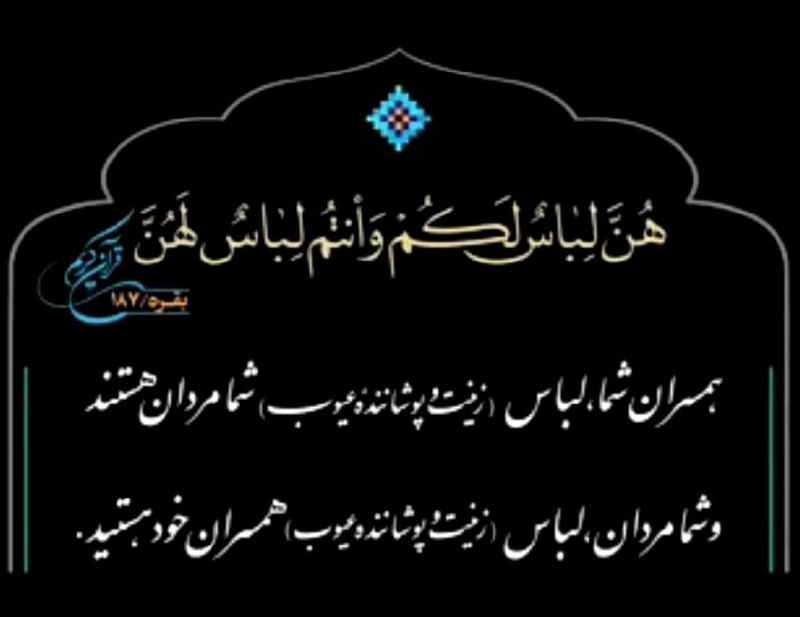 هُنَّ لِبٰاسٌ لَكُمْ وَأَنْتُم لِبٰاسٌ لَهُنَّ
قرآن کریم
بقره/۱۸۷
همسران شما، لباس (زینت و پوشانندهٔ عیوب) شما مردان هستند
و شما مردان، لباس (زینت و پوشاننده عیوب) همسران خود هستید.